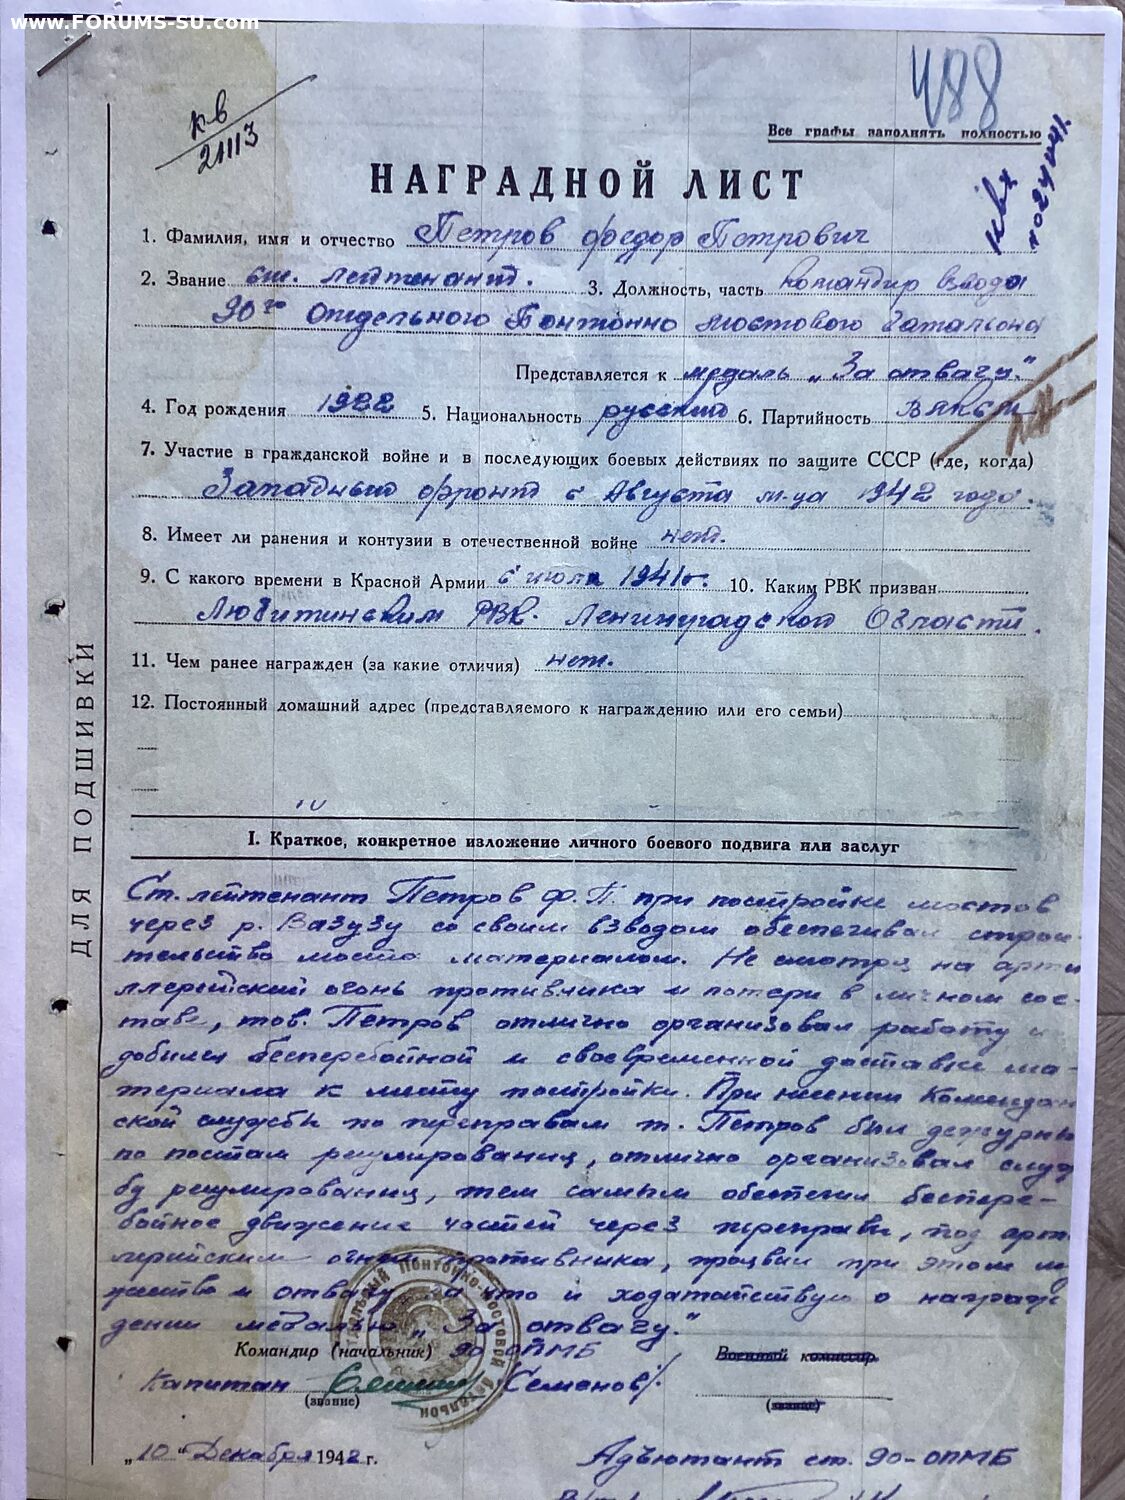 www.FORUMS-SU.com
488
кв
21113
Все графы заполнять полностью
НАГРАДНОЙ ЛИСТ
1. Фамилия, имя и отчество Петров Федор Петрович
2. Звание ст. лейтенант. 3. Должность, часть командир взвода
90го Отдельного Понтонно мостового батальона
Представляется к медаль „За отвагу."
4. Год рождения 1922 5. Национальность русский 6. Партийность
7. Участие в гражданской войне и в последующих боевых действиях по защите СССР (где, когда)
Западный фронт с Августа м-ца 1942 года.
8. Имеет ли ранения и контузии в отечественной войне нет.
9. С какого времени в Красной Армии 6 1941г. 10. Каким РВК призван
Любитинским РВК. Ленинградской Области.
11. Чем ранее награжден (за какие отличия) нет.
12. Постоянный домашний адрес (представляемого к награждению или его семьи)
ДЛЯ ПОДШИВКИ
I. Краткое, конкретное изложение личного боевого подвига или заслуг
Ст. лейтенант Петров Ф. П. при постройке мостов
через р. Вазузу со своим взводом обеспечивал строи-
тельство моста материалом. Не смотря на арти
ллерийский огонь противника и потери в личном сос-
таве, тов. Петров отлично организовал работу и
добился бесперебойной и своевременной доставке ма-
териала к месту постройки. При несении Комендан
ской службы по переправам т. Петров был дежурны
по постам регулирования, отлично организовал служ
бу регулирования, тем самым обеспечил беспере-
бойное движение частей через переправы, под арт
лерийским огнем противника, проявил при этом му
жество и отвагу. За что и ходатайствую о награж
дении медалью „За отвагу."
Командир (начальник) 90 ОПМБ
Военный комиссар
Капитан Семенов/.
(звание)
(звание)
Понтонно-Мостовой батальон
„10" Декабря 1942 г.
Адъютант ст. 90-ОПМБ